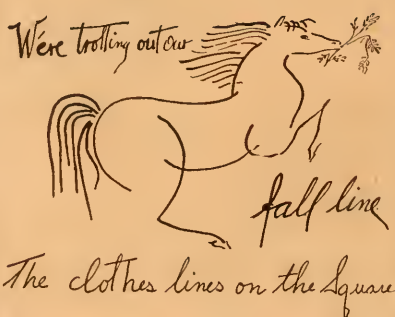 We're trotting out our
fall line
The clothes lines on the Square